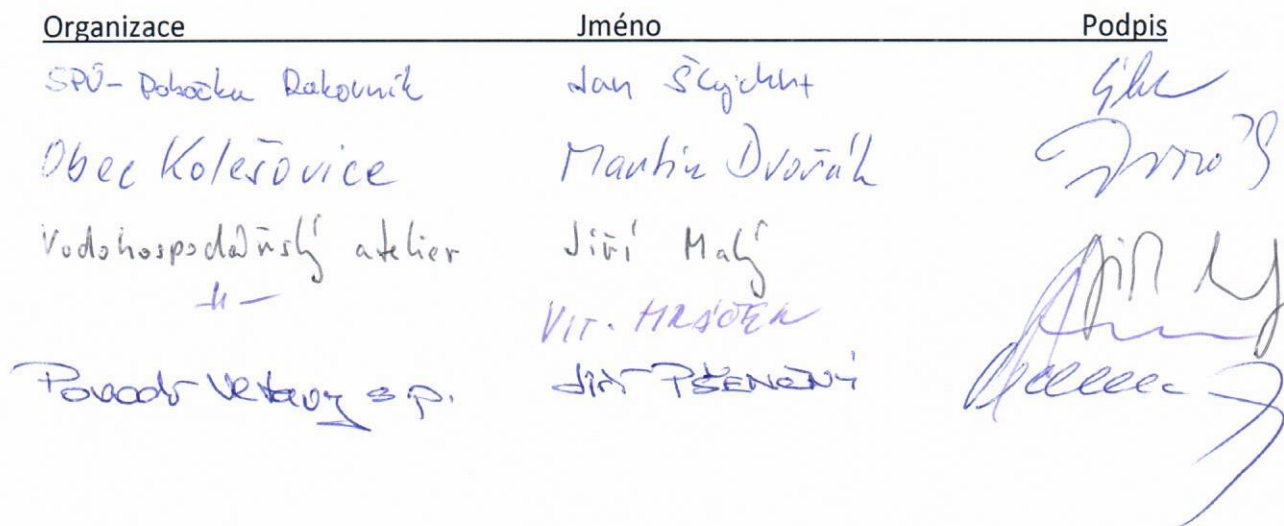 Organizace Jméno Podpis
SPÚ - Pobočka Rakovník Jan
Obec Kolešovice Martin Dvořák
Vodohospodářský atelier Jiří Malý
-11- VIT. HRÁČEK
Povodí Vltavy s.p. Jiří PŠENČNÝ